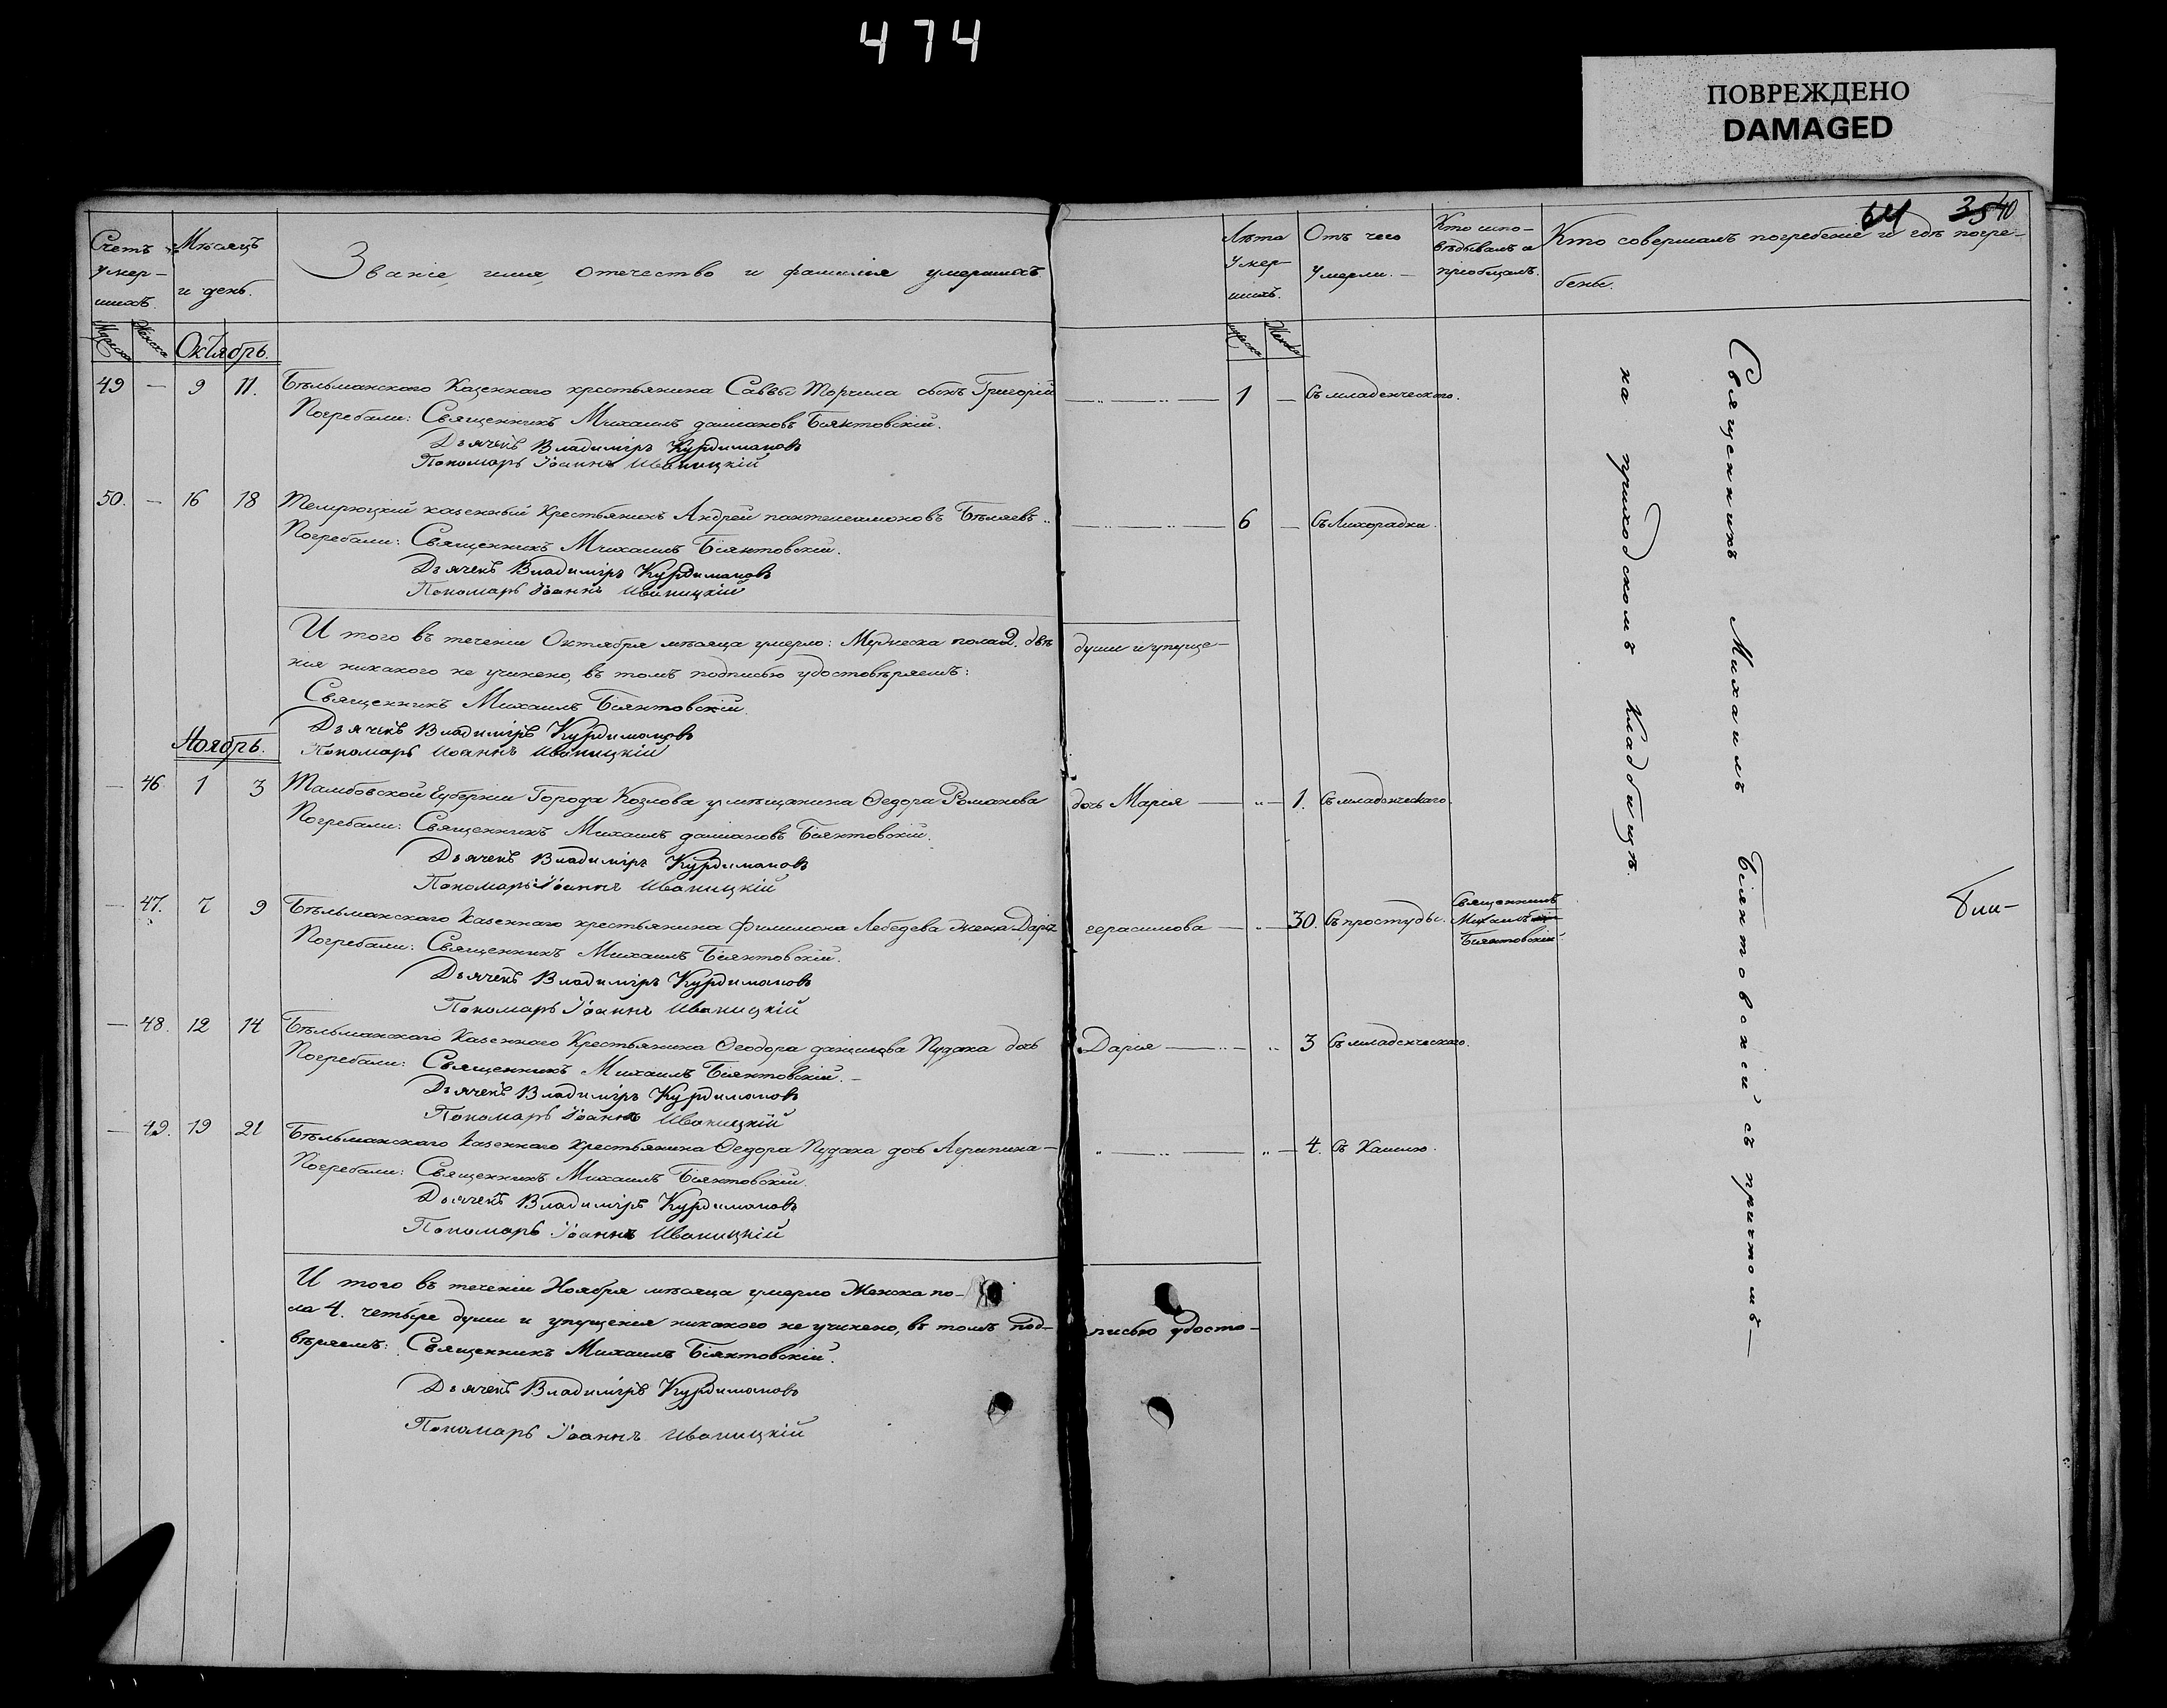 474
ПОВРЕЖДЕНО
DAMAGED
64 35 40
Счетъ умер-шихъ.
Мѣсяцъ и день.
Званіе, имя, отечество и фамилія умершихъ.
Лѣта умер-шихъ.
Отъ чего умерли. —
Кто испо-вѣдывалъ и пріобщалъ.
Кто совершалъ погребеніе и гдѣ погре-бены.
Мужеска Женска
Октябрь.
мужеска Женска
49 — 9 11. Бѣльманскаго Казеннаго крестьянина Саввы Торчила сынъ Григорій — 1 — Съ младенческаго.
Погребали: Священникъ Михаилъ даміановъ Біянтовскій.
Дьячекъ Владиміръ Курдимановъ
Пономарь Іоаннъ Иваницкій
50. — 16 18 Темрюцкій казенный Крестьянинъ Андрей пантелеимоновъ Бѣляевъ — 6 — Съ Лихорадки.
Погребали: Священникъ Михаилъ Біянтовскій.
Дьячекъ Владиміръ Курдимановъ
Пономарь Іоаннъ Иваницкій
И того въ теченіи Октября мѣсяца умерло: Мужеска пола 2. двѣ души и упуще-
нія никакого не учинено, въ томъ подписью удостовѣряемъ:
Священникъ Михаилъ Біянтовскій.
Дьячекъ Владиміръ Курдимановъ
Пономарь Иоаннъ Иваницкій
Ноябрь.
— 46. 1 3 Тамбовской Губерніи Города Козлова у мѣщанина Ѳедора Романова дочь Марія — 1. Съ младенческаго.
Погребали: Священникъ Михаилъ даміановъ Біянтовскій.
Дьячекъ Владиміръ Курдимановъ
Пономарь Іоаннъ Иваницкій
— 47. 7 9 Бѣльманскаго Казеннаго крестьянина Филимона Лебедева жена Дарія герасимова — 30. Съ простуды. Священникъ Михаилъ Біянтовскій.
Погребали: Священникъ Михаилъ Біянтовскій.
Дьячекъ Владиміръ Курдимановъ
Пономарь Іоаннъ Иваницкій
— 48. 12 14 Бѣльманскаго Казеннаго Крестьянина Ѳеодора данилова Пудака дочь Дарія — 3 Съ младенческаго.
Погребали: Священникъ Михаилъ Біянтовскій. —
Дьячекъ Владиміръ Курдимановъ
Пономарь Іоаннъ Иваницкій
— 49. 19 21 Бѣльманскаго Казеннаго Крестьянина Ѳедора Пудака дочь Агрипина — 4. Съ Кашлю.
Погребали: Священникъ Михаилъ Біянтовскій.
Дьячекъ Владиміръ Курдимановъ
Пономарь Іоаннъ Иваницкій
И того въ теченіи Ноября мѣсяца умерло Женска по-
ла 4. четыре души и упущенія никакого не учинено, въ томъ под-писью удосто-
вѣряемъ: Священникъ Михаилъ Біянтовскій.
Дьячекъ Владиміръ Курдимановъ
Пономарь Іоаннъ Иваницкій
Священникъ Михаилъ Біянтовскій съ причтомъ —
на приходскомъ Кладбищѣ.